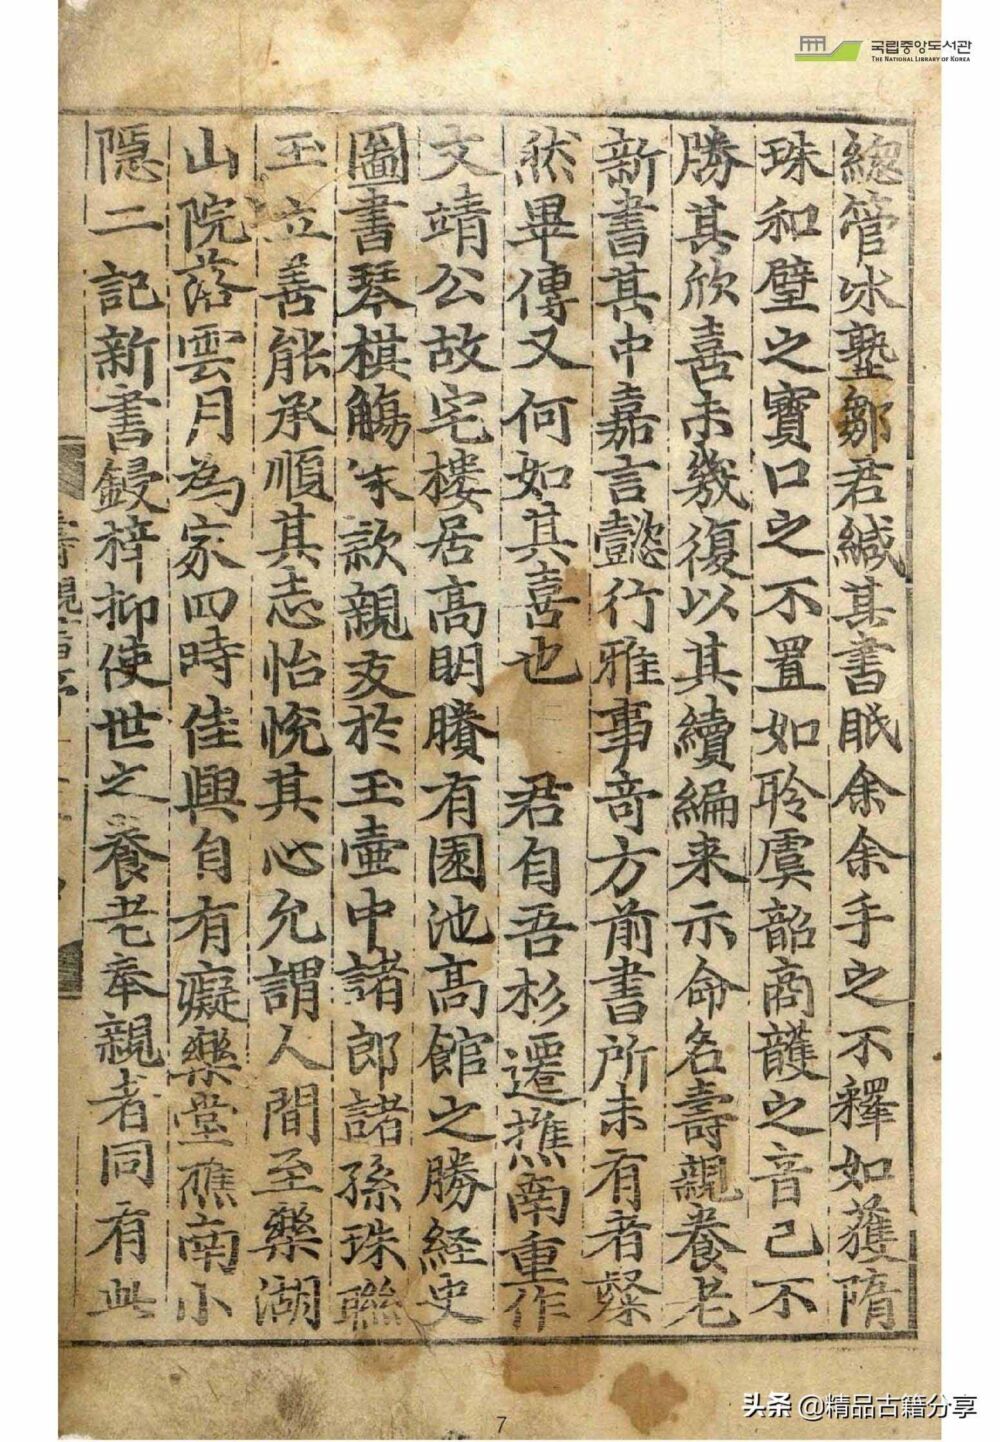 국립중앙도서관
THE NATIONAL LIBRARY OF KOREA
緫管冰壑鄒君緘其書眂余余手之不釋如獲隋
珠和璧之寶口之不置如聆虞韶商頀之音己不
勝其欣喜未幾復以其續編来示命名壽親養老
新書其中嘉言懿行雅事竒方前書所未有者粲
然畢傳又何如其喜也　君自吾杉遷樵南重作
文靖公故宅樓居高明賸有園池高館之勝経史
圖書琴棋觴 款親友於玉壷中諸郎諸孫珠聯
玉立善能承順其志怡悅其心允謂人間至樂湖
山院落雲月為家四時佳興自有癡樂堂樵南小
隠二記新書鋟梓抑使世之養老奉親者同有此
7
头条 @精品古籍分享